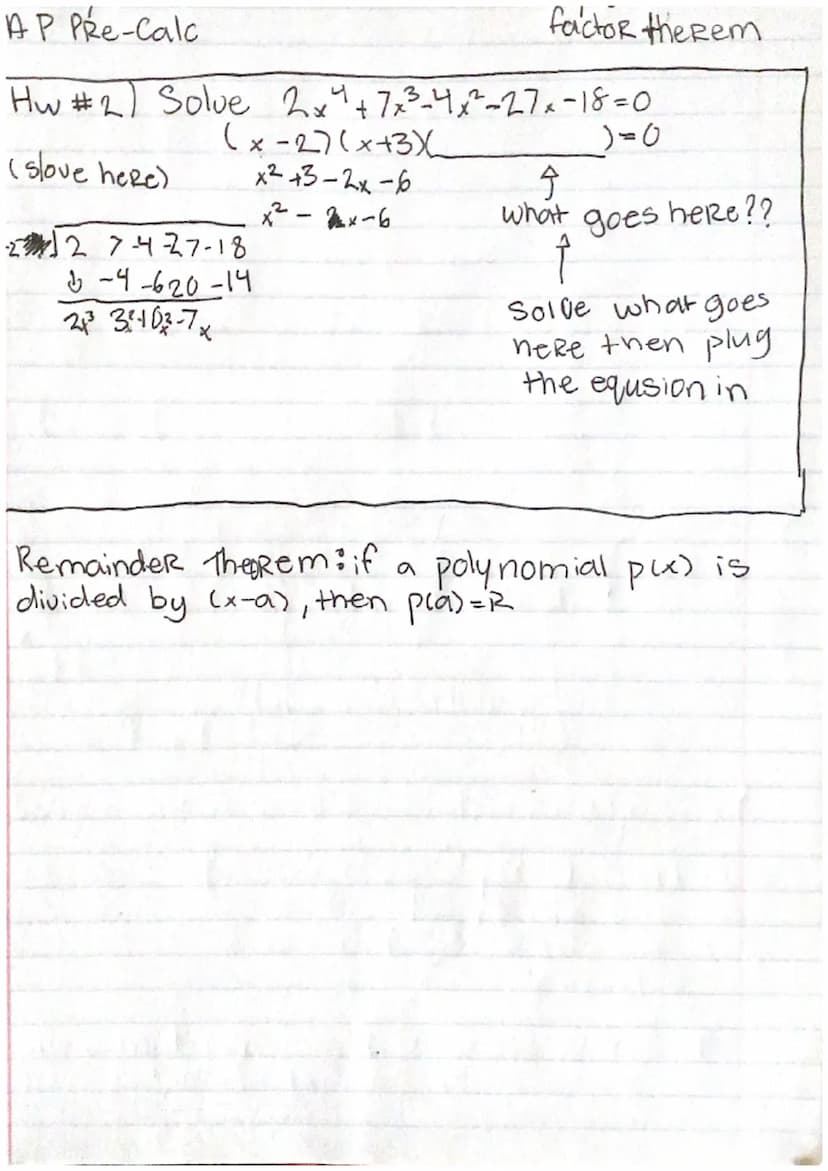 AP PRe-Calc
factoR theRem
Hw #2) Solve 2x⁴+7x³-4x²-27x-18=0
(x-2)(x+3)(__________)=0
(slove heRe)
x²+3-2x-6
x² - x-6
what goes heRe??
-2 2 7-4-27-18
↓ -4 -6 20 -14
2x³ 3x²-10x²-7x
Solve what goes
heRe then plug
the equsion in
RemaindeR TheoRem: if a polynomial p(x) is
divided by (x-a), then p(a)=R